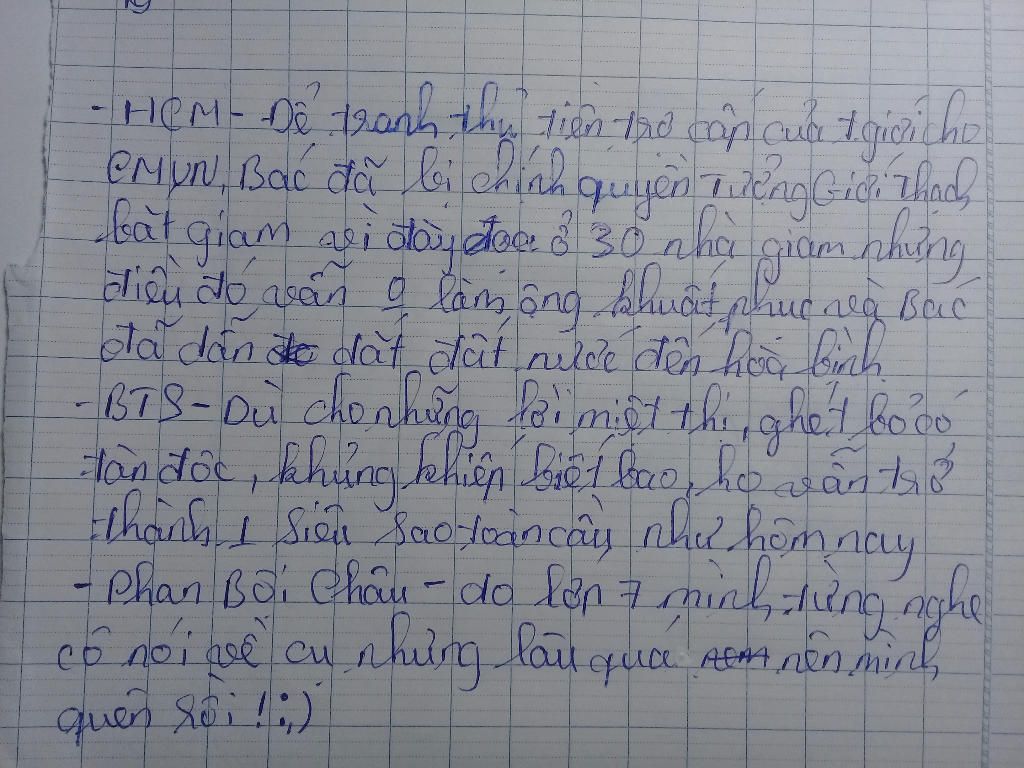 - HCM - Để tranh thủ tiền trợ cấp của tgiới cho
CMVN, Bác đã bị chính quyền Tưởng Giới Thạch
bắt giam vì đày đoạ ở 30 nhà giam nhưng
điều đó vẫn 0 làm ông khuất phục và Bác
đã dẫn dắt đất nước đến hoà bình
- BTS - Dù cho những lời miệt thị, ghét bỏ có
tàn độc, khủng khiếp biết bao, họ vẫn trở
thành 1 siêu sao toàn cầu như hôm nay
- Phan Bội Châu - do lớp 7 mình từng nghe
cô nói về cụ nhưng lâu quá nên mình
quên rồi ! :,)